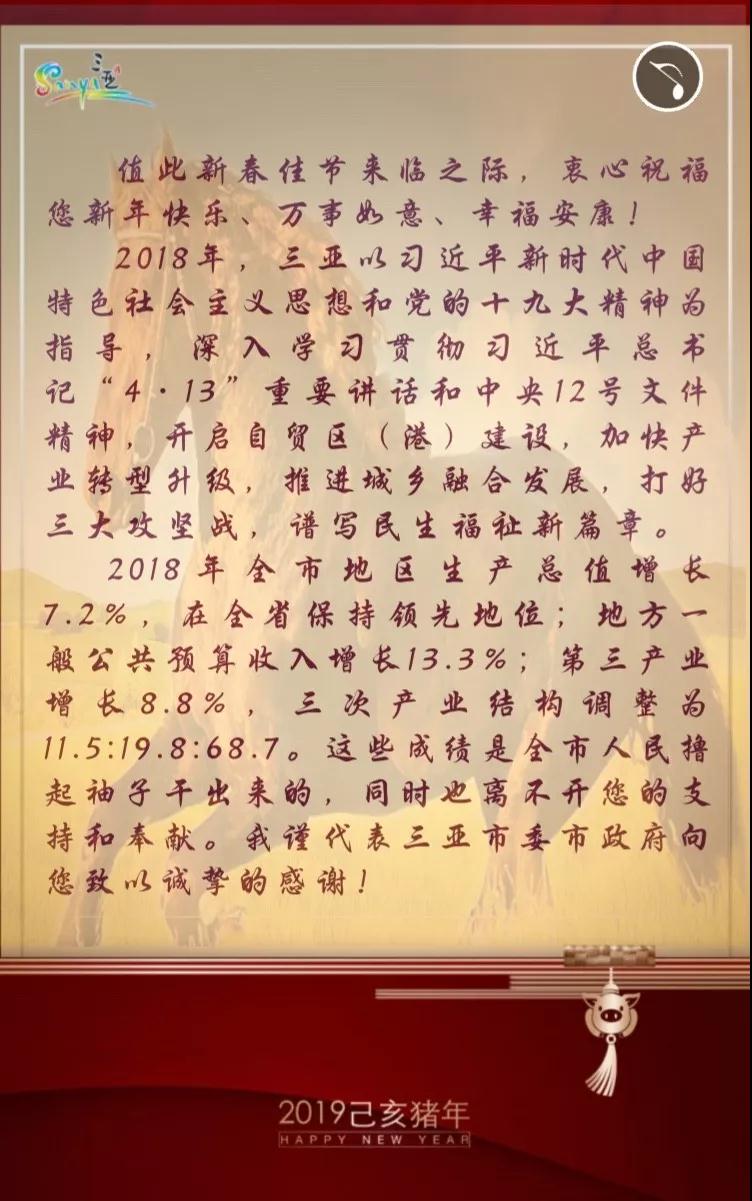 三亚
Sanya
值此新春佳节来临之际，衷心祝福
您新年快乐、万事如意、幸福安康！
2018年，三亚以习近平新时代中国
特色社会主义思想和党的十九大精神为
指导，深入学习贯彻习近平总书
记“4·13”重要讲话和中央12号文件
精神，开启自贸区（港）建设，加快产
业转型升级，推进城乡融合发展，打好
三大攻坚战，谱写民生福祉新篇章。
2018年全市地区生产总值增长
7.2%，在全省保持领先地位；地方一
般公共预算收入增长13.3%；第三产业
增长8.8%，三次产业结构调整为
11.5:19.8:68.7。这些成绩是全市人民撸
起袖子干出来的，同时也离不开您的支
持和奉献。我谨代表三亚市委市政府向
您致以诚挚的感谢！
2019己亥猪年
HAPPY NEW YEAR